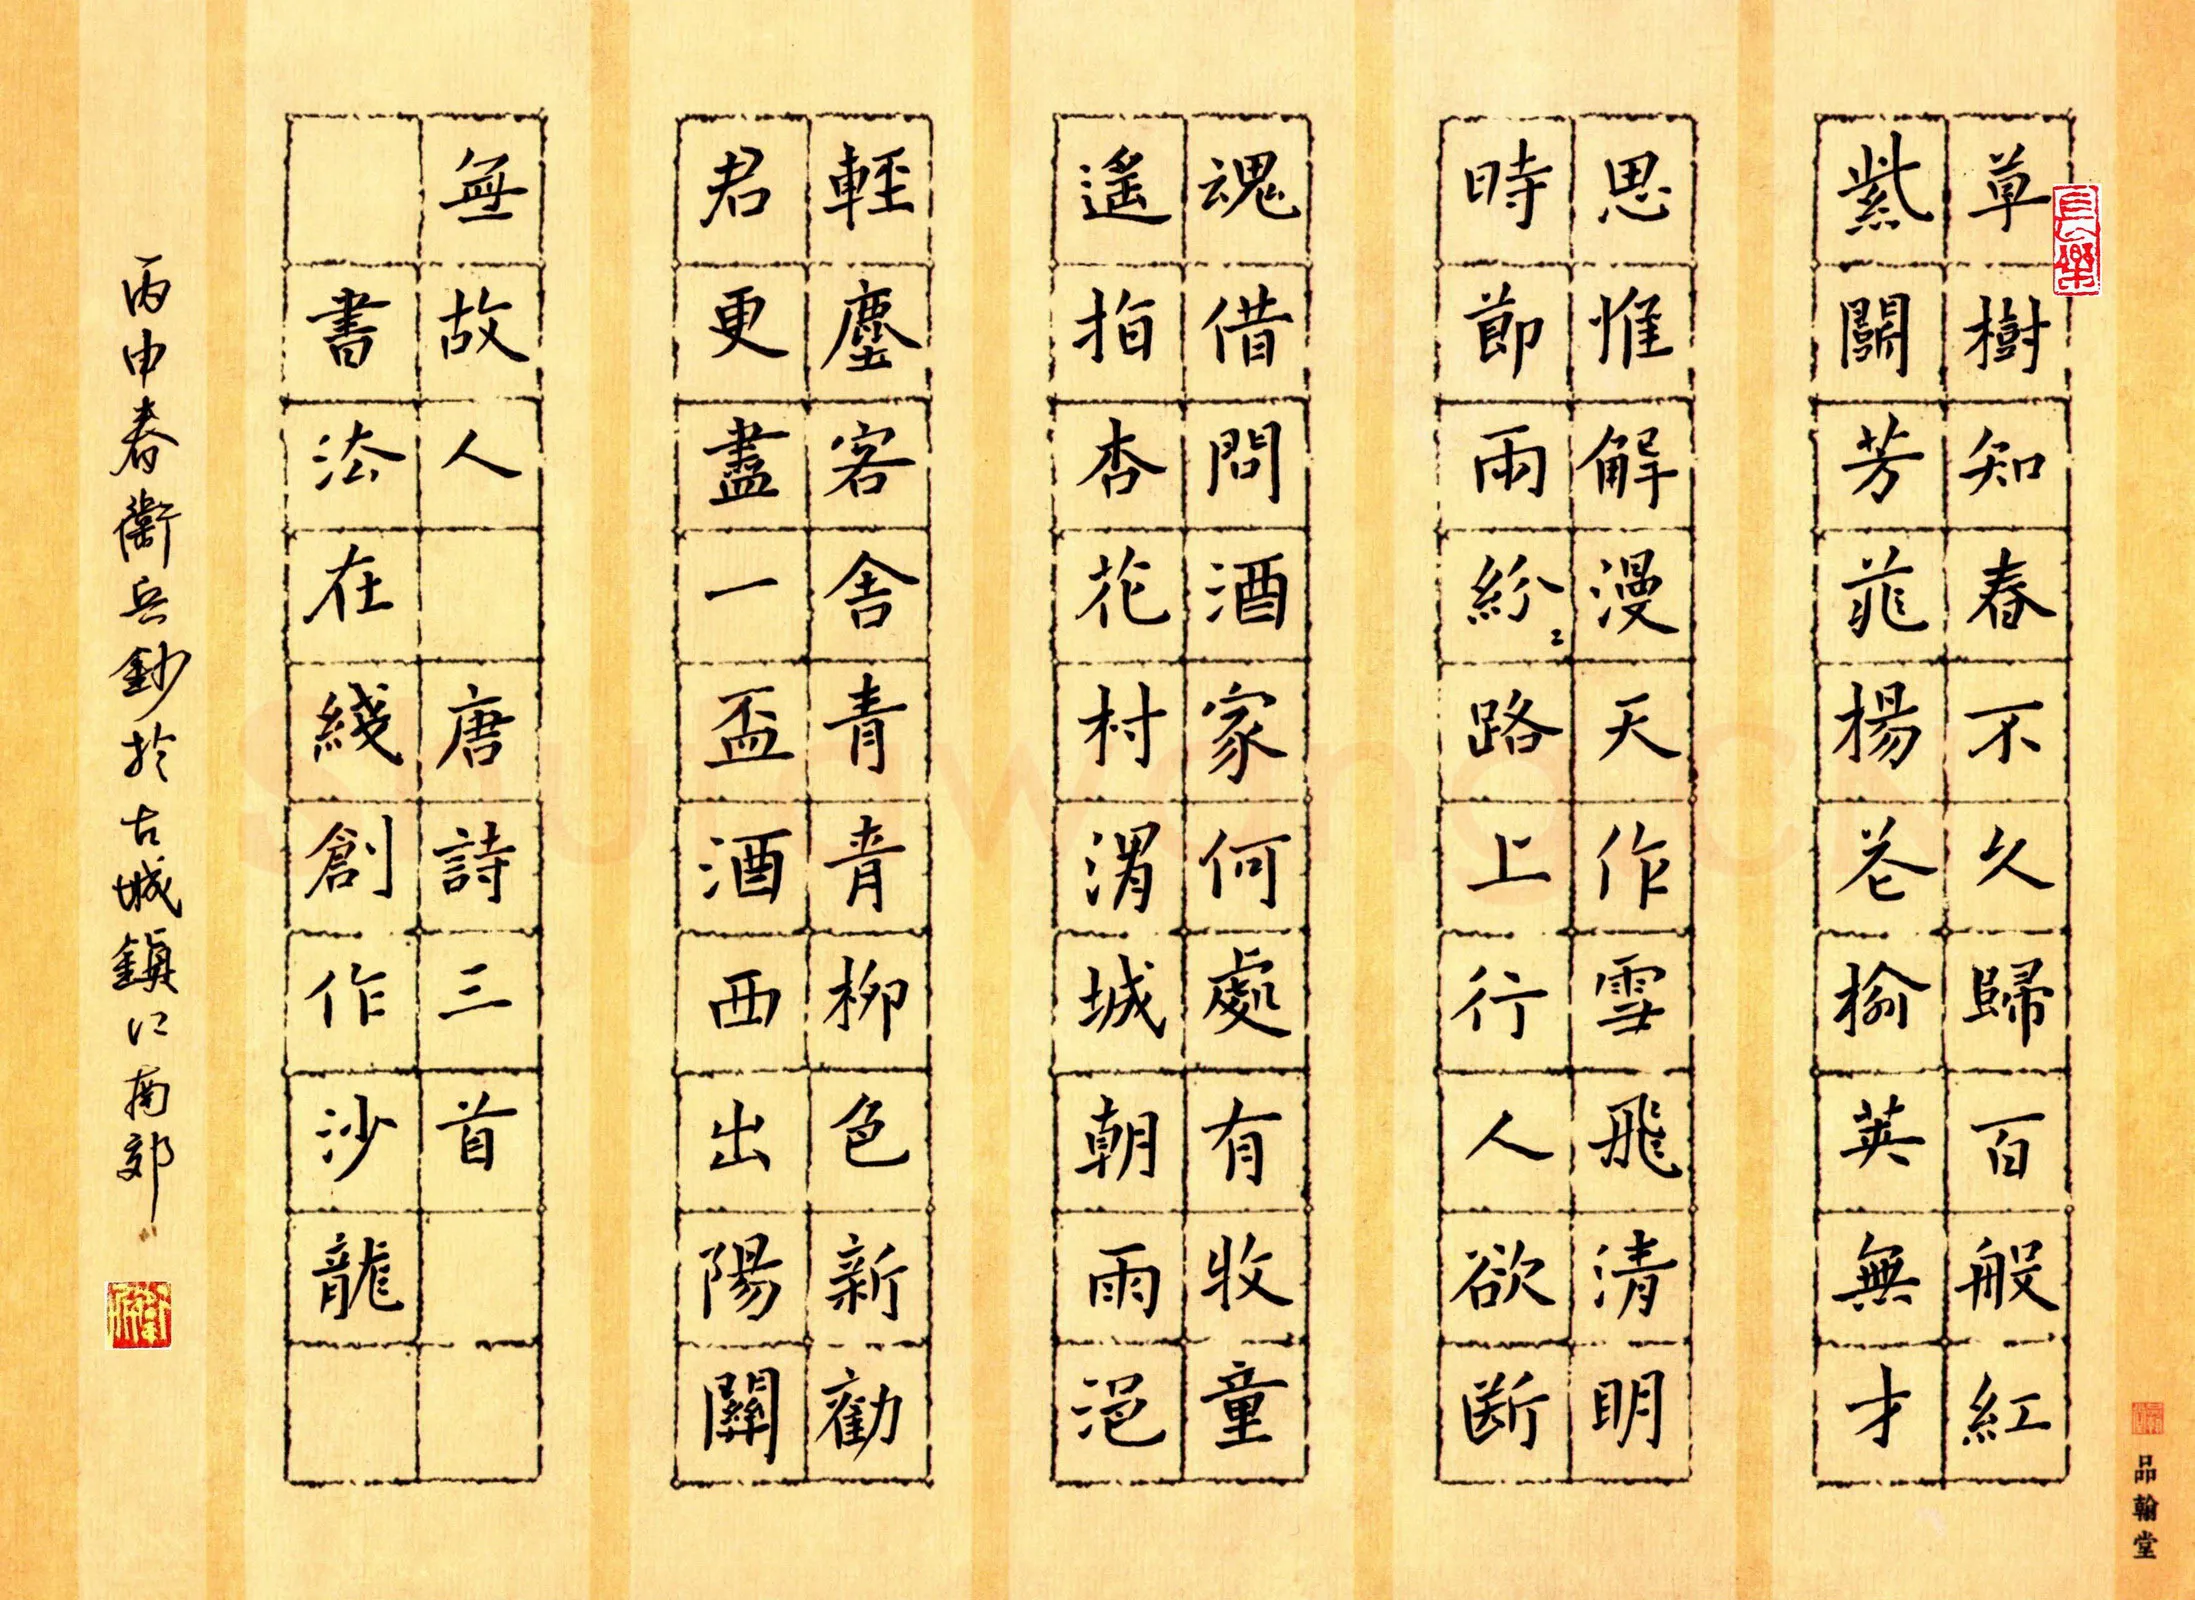 草樹知春不久歸百般紅
紫鬪芳菲楊花榆英無才
思惟解漫天作雪飛清明
時節雨紛〻路上行人欲斷
魂借問酒家何處有牧童
遙指杏花村渭城朝雨浥
輕塵客舍青青柳色新勸
君更盡一盃酒西出陽關
無故人 唐詩三首
書法在綫創作沙龍
丙申春衛兵鈔於古城鎮江南郊
品翰堂